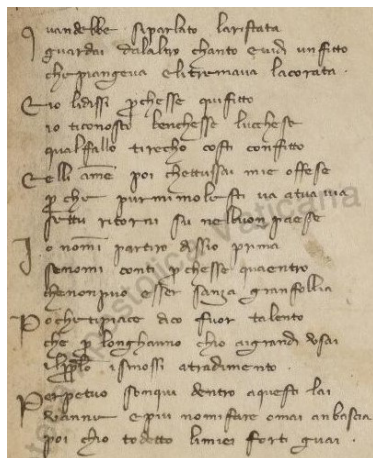 Quandebbe siparlato laristata
guardai dalaltro chanto evidi unfitto
chepiangeva elitremava lacorata.
Et io lidissi pchesse quifitto
io ticonosco benchesse lucchese
qualfallo tirecho costi confitto
Et elli ame poi chettussai mie offese
p che purmimolesti va atuavia
settu ritorni su nelbuon paese
Io nomi partiro dissio prima
senomi conti pchesse quaentro
chenonpuo esser sanza granfollia
Po chetipiace dico fuor talento
che p longhanno chio aigrandi
ismossi atradimento.
Perpetuo sonqui dentro aquesti lai
vanne epiu nomifare omai anbascia
poi chio todetto limiei forti guai.
Vaticana